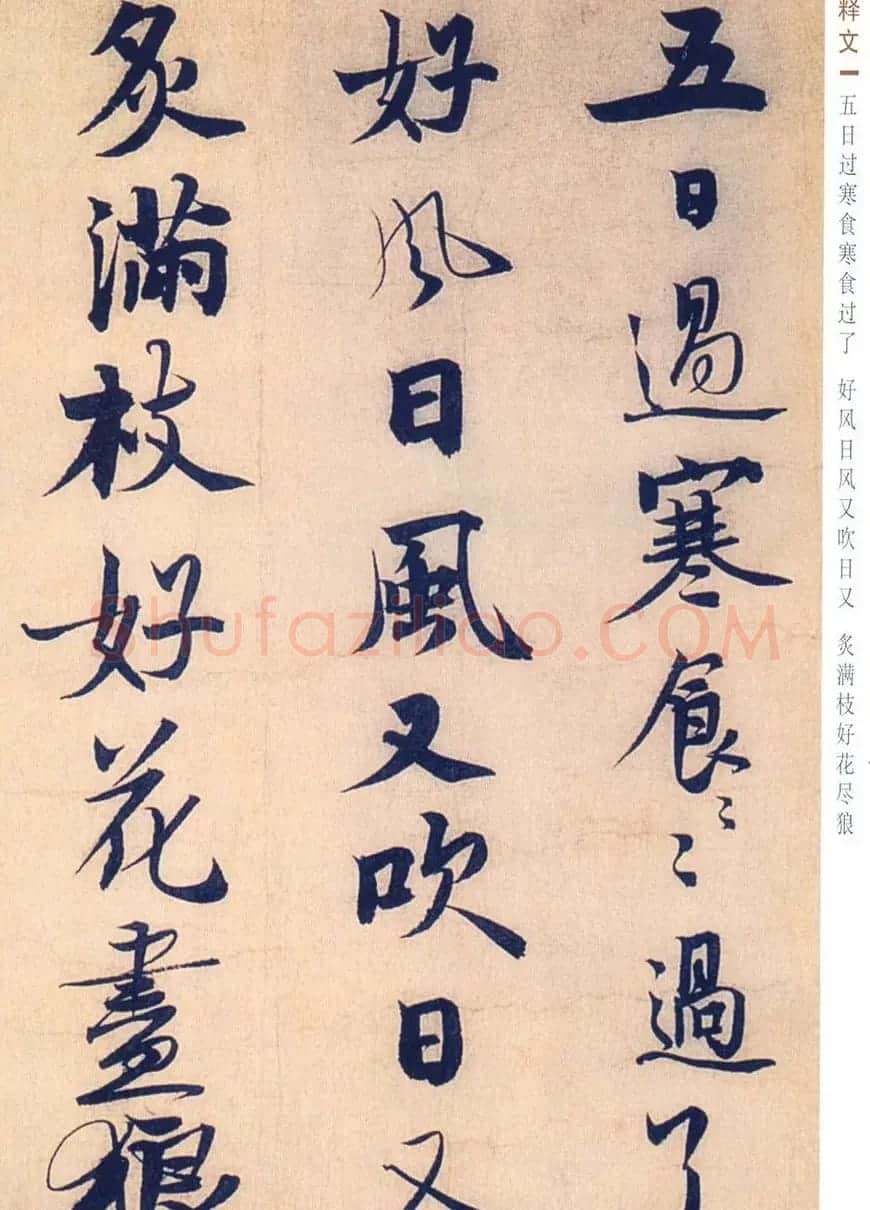 释文
五日过寒食寒食过了 好风日风又吹日又 炙满枝好花尽狼
五日過寒食〻〻過了
好風日風又吹日又
炙满枝好花盡狼
Shufaziliao.COM